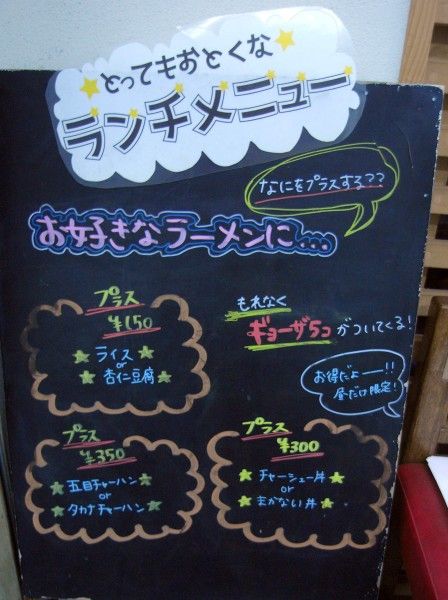 とってもおとくな
ランチメニュー
なにをプラスする??
お好きなラーメンに...
プラス
¥150
ライス
or
杏仁豆腐
もれなく
ギョーザ5コがついてくる!
お得だよーー!!
昼だけ限定!
プラス
¥350
五目チャーハン
or
タカナチャーハン
プラス
¥300
チャーシュー丼
or
まかない丼